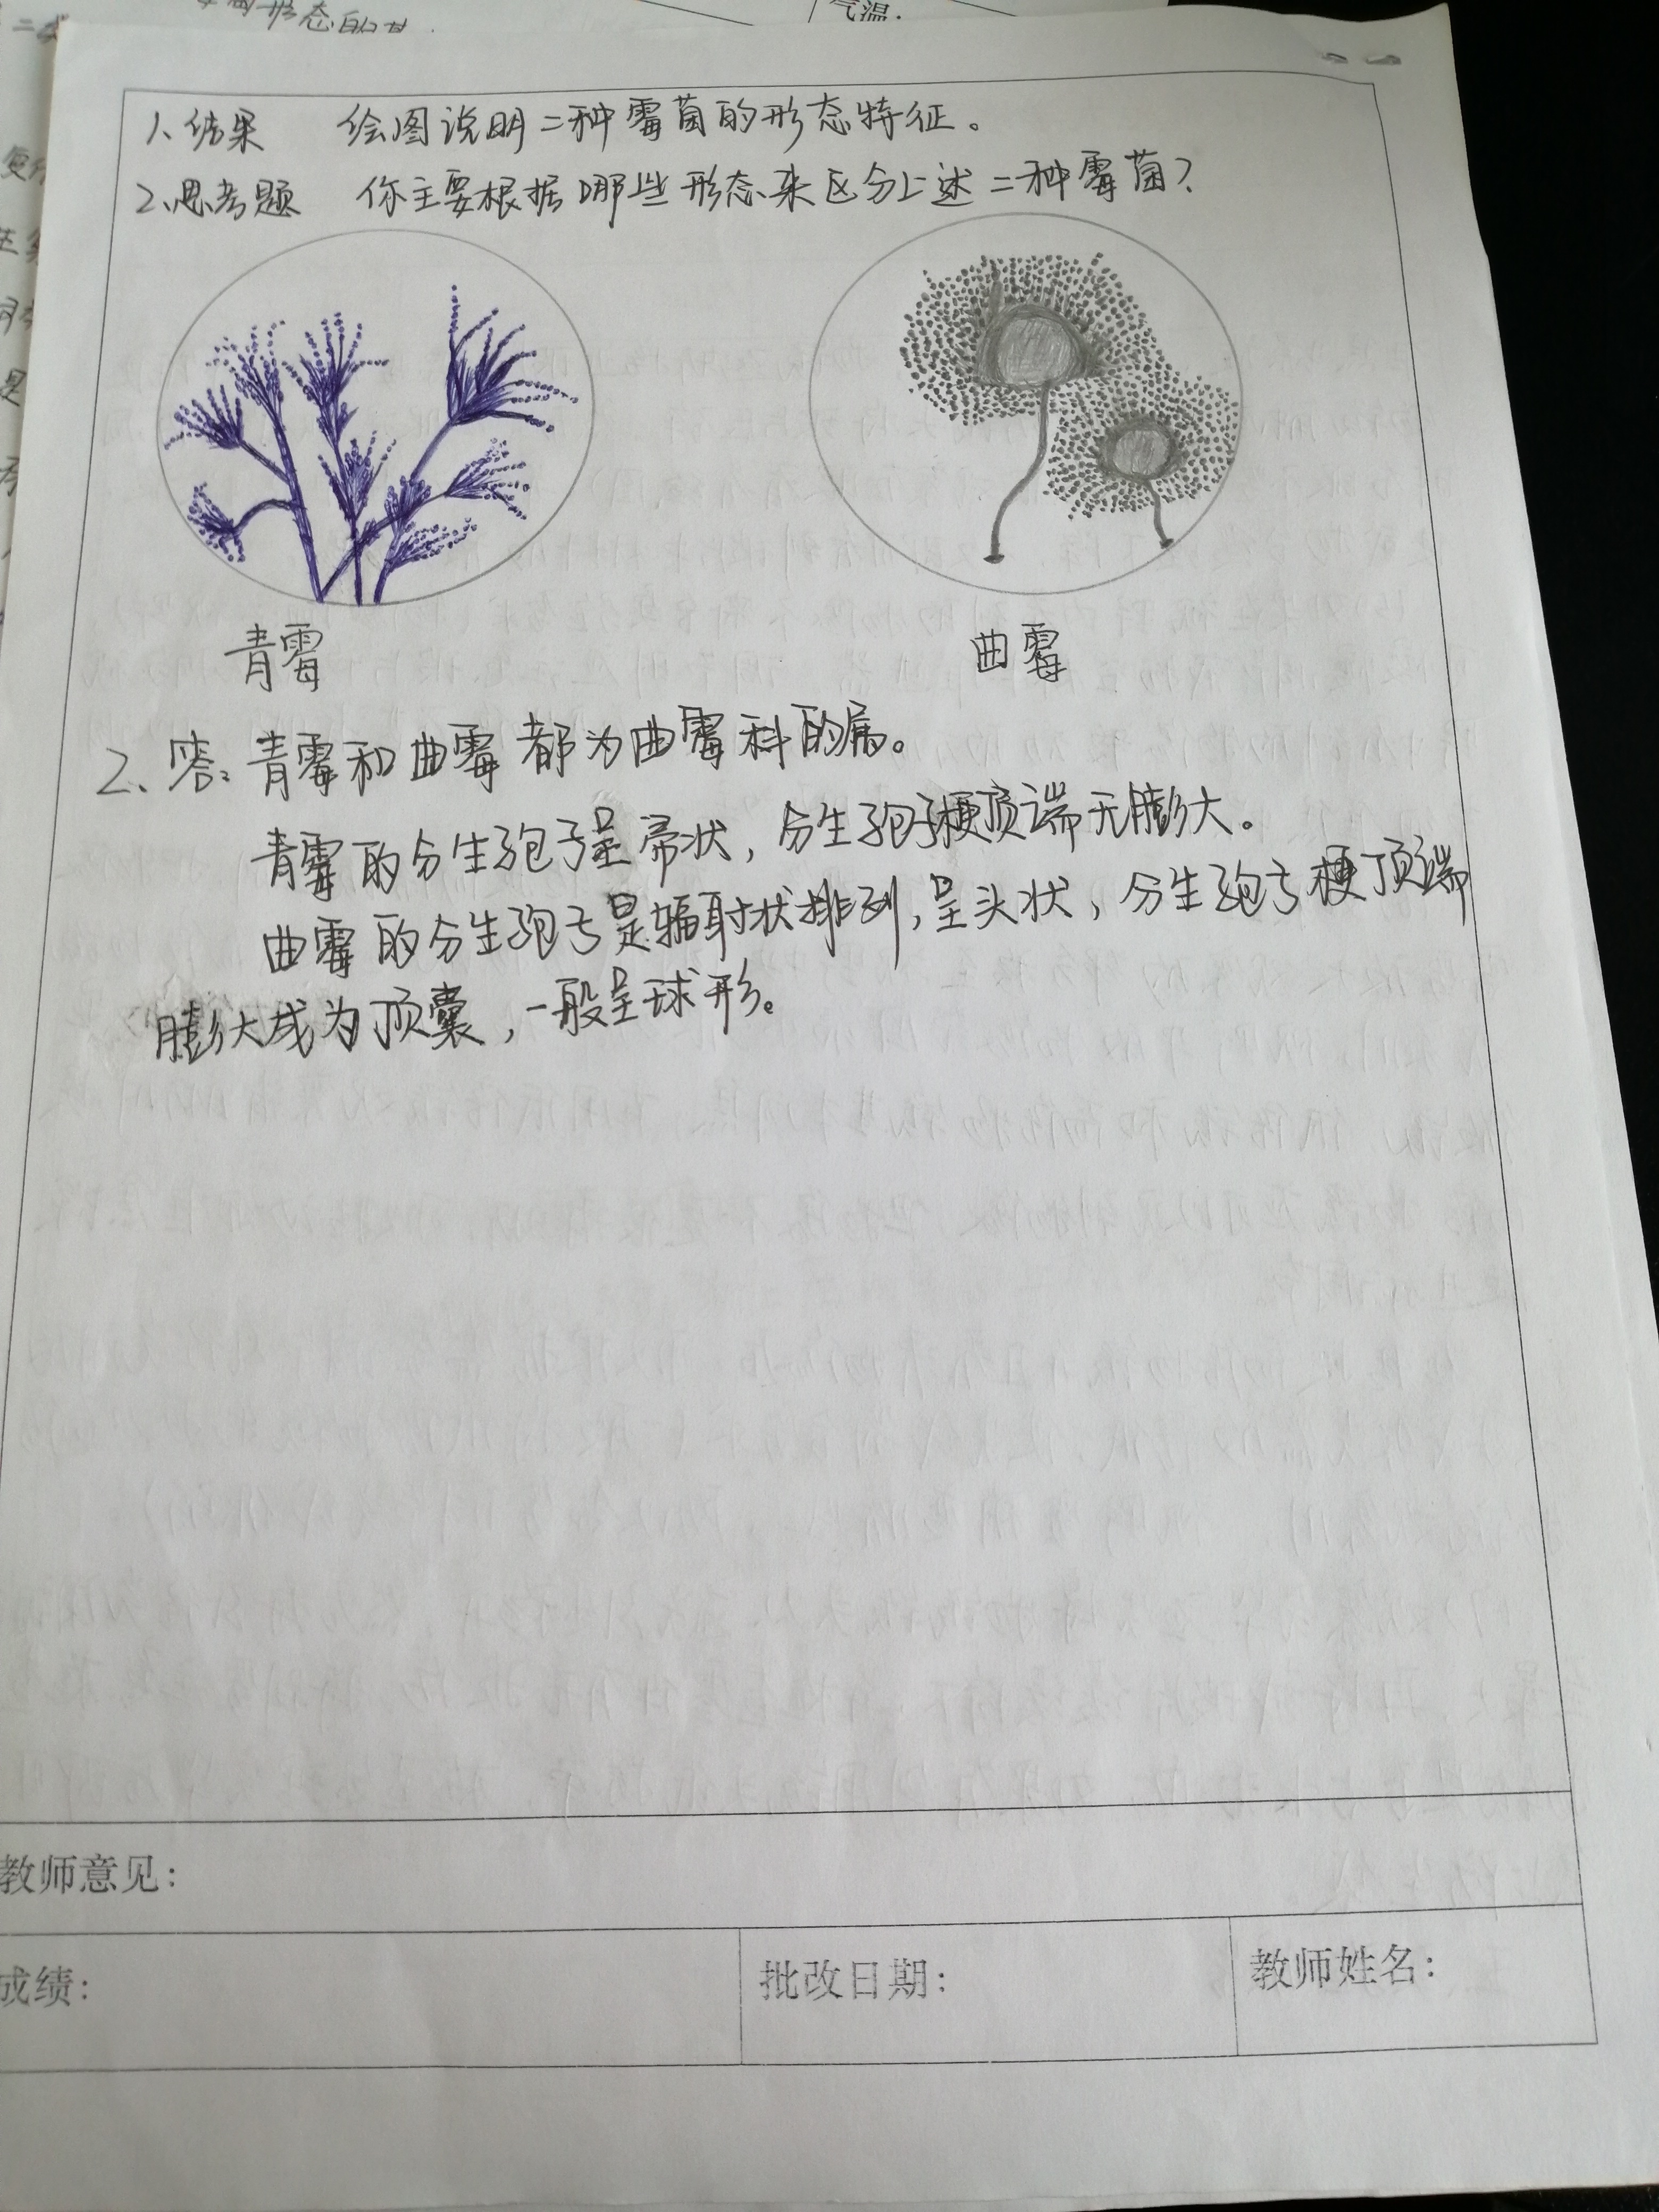 气温：
1、结果 绘图说明二种霉菌的形态特征。
2、思考题 你主要根据哪些形态来区分上述二种霉菌？
青霉
曲霉
2、答：青霉和曲霉都为曲霉科的属。
青霉的分生孢子呈帚状，分生孢子梗顶端无膨大。
曲霉的分生孢子是辐射状排列，呈头状，分生孢子梗顶端
膨大成为顶囊，一般呈球形。
教师意见：
成绩：
批改日期：
教师姓名：